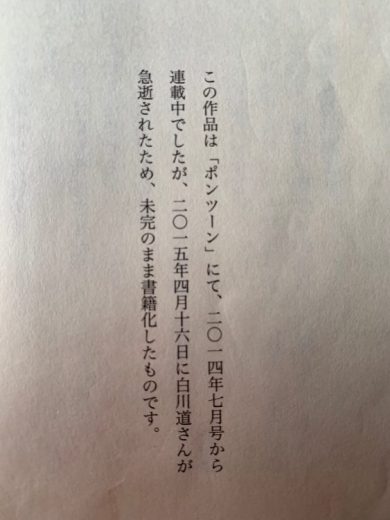 この作品は「ポンツーン」にて、二〇一四年七月号から
連載中でしたが、二〇一五年四月十六日に白川道さんが
急逝されたため、未完のまま書籍化したものです。